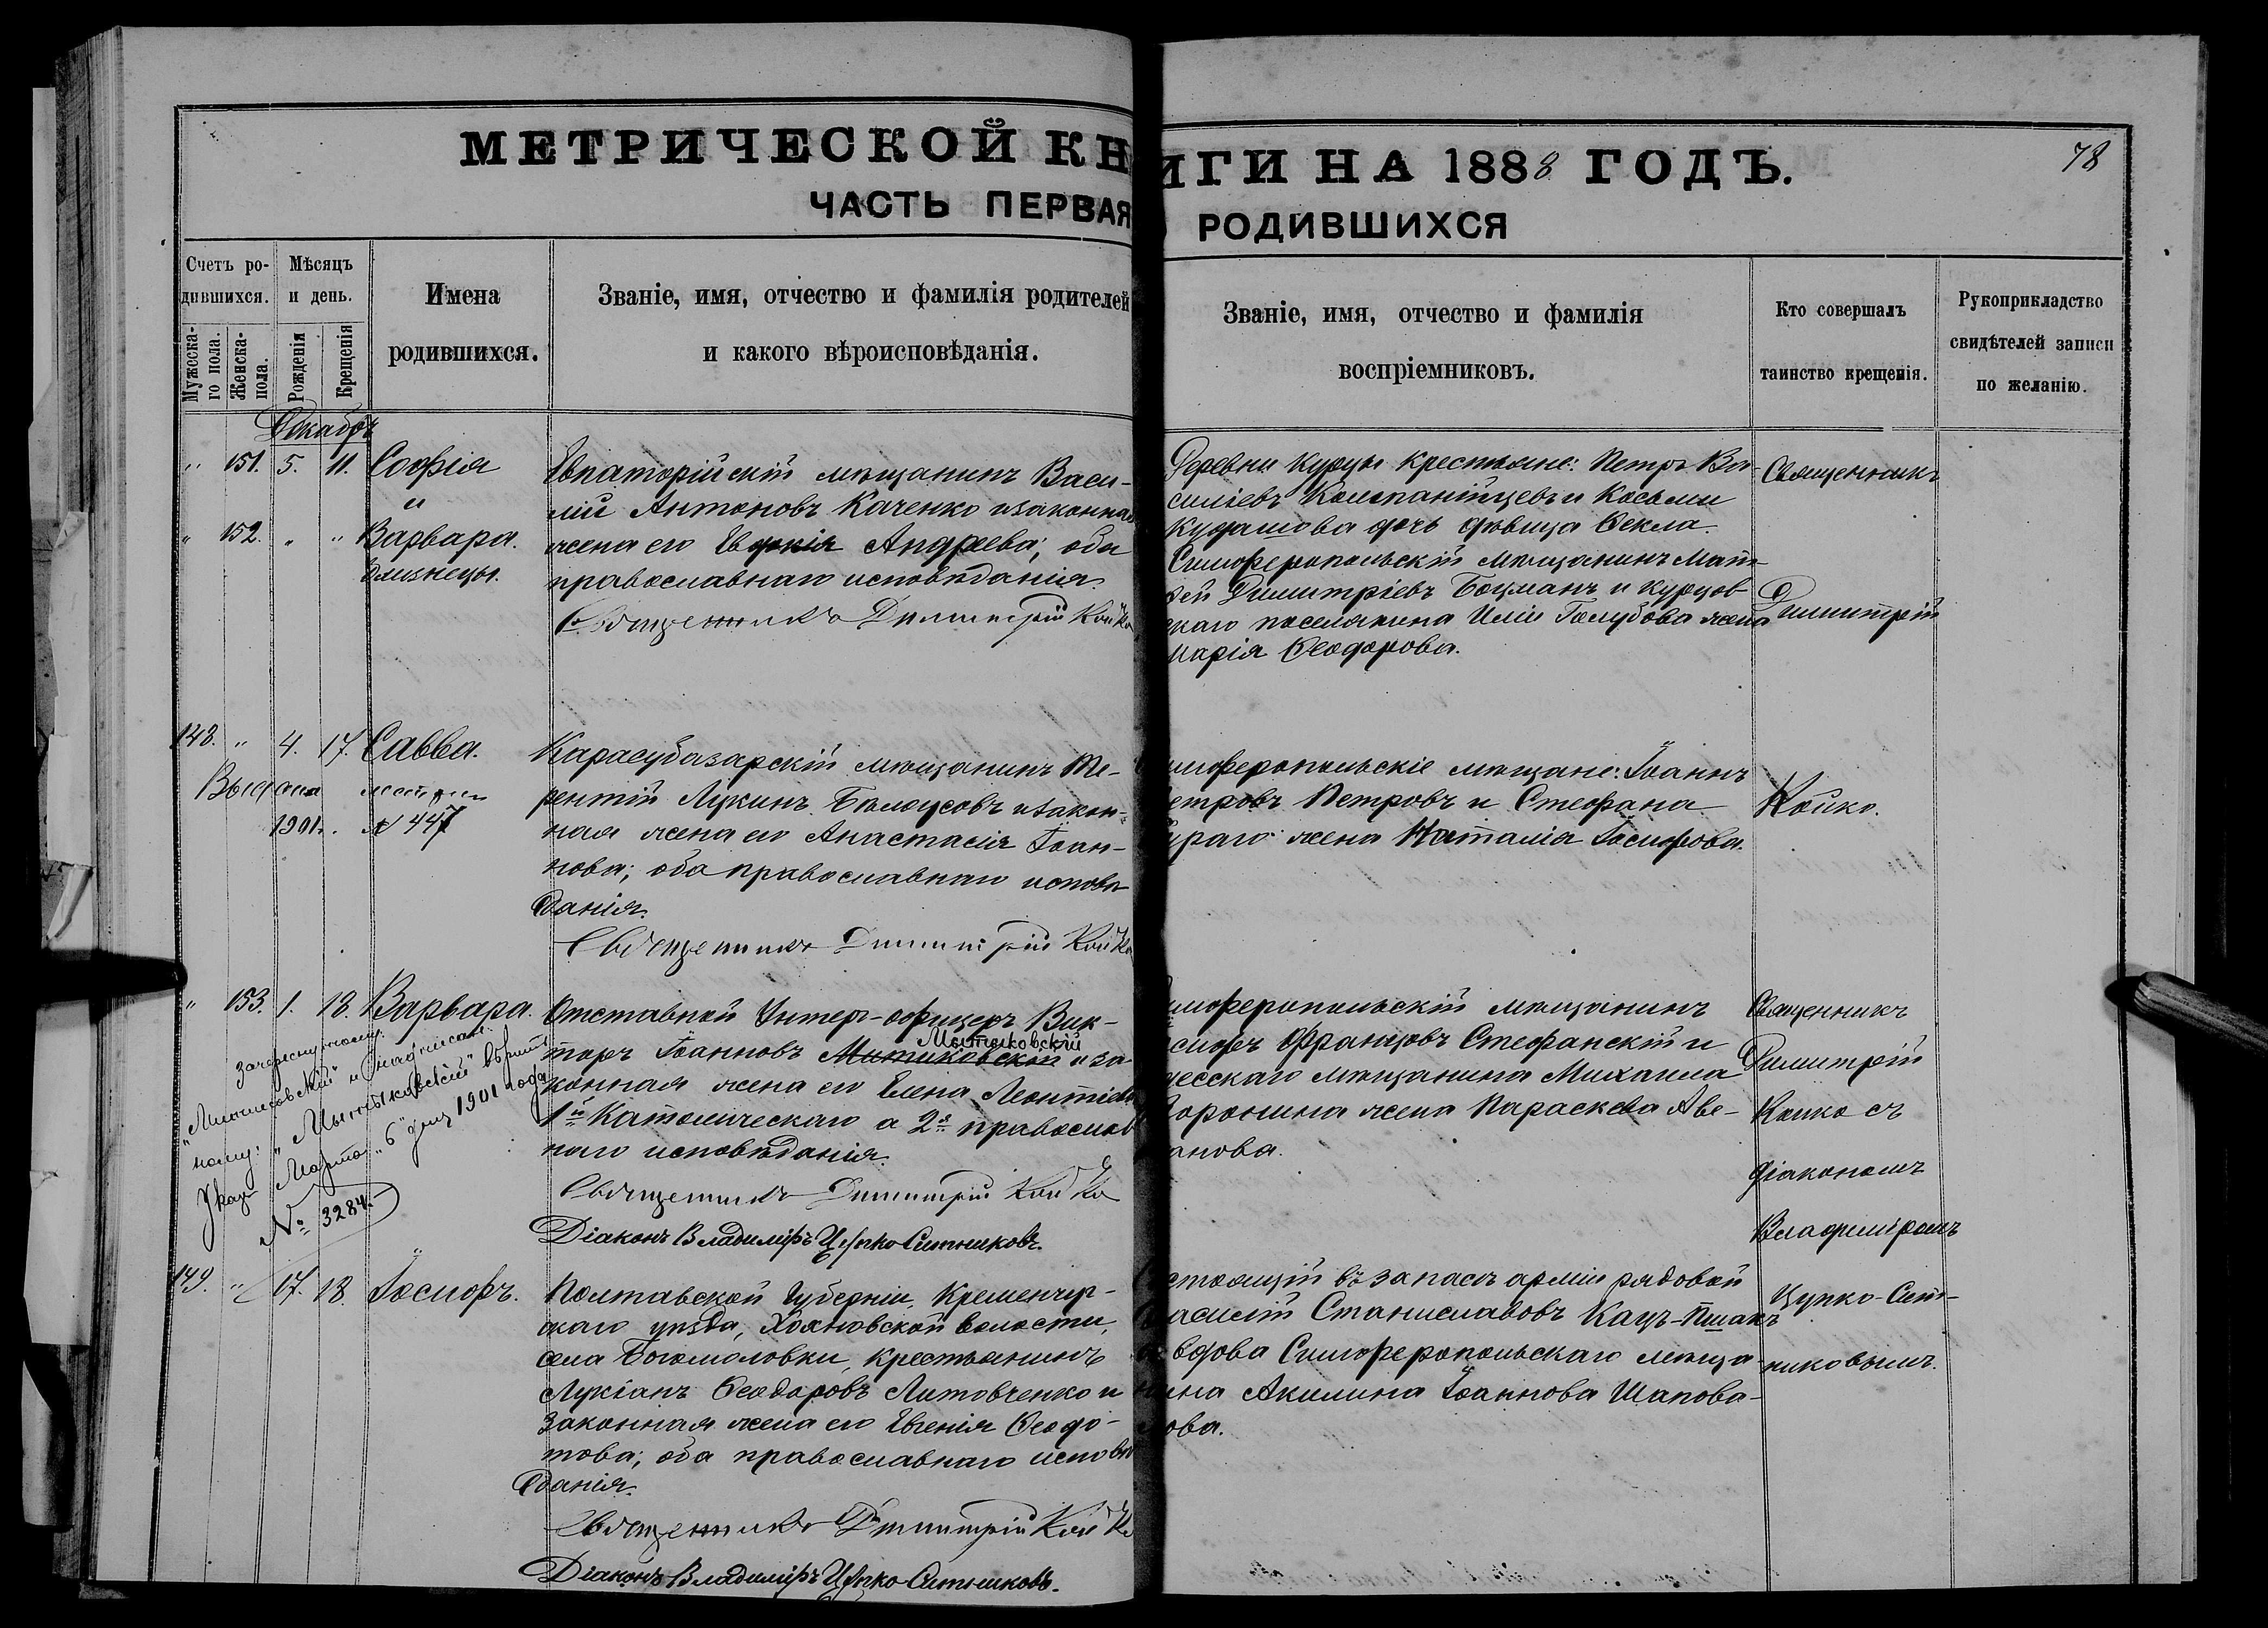 МЕТРИЧЕСКОЙ КНИГИ НА 1888 ГОДЪ.
78
ЧАСТЬ ПЕРВАЯ РОДИВШИХСЯ
Счетъ родившихся.
Мужескаго пола.
Женска- пола.
Мѣсяцъ и день.
Рожденія
Крещенія
Имена родившихся.
Званіе, имя, отчество и фамилія родителей
и какого вѣроисповѣданія.
Званіе, имя, отчество и фамилія
воспріемниковъ.
Кто совершалъ
таинство крещенія.
Рукоприкладство
свидѣтелей записи
по желанію.
Декабрь
" 151. 5. 11. София
и
" 152. " " Варвара.
близнецы.
Евпаторійскій мѣщанинъ Васи-
лій Антоновъ Каченко и законная
жена его Евдокія Андреева; оба
православнаго исповѣданія.
Священникъ Димитрій Койко
Деревни Курцы крестьяне: Петръ Ва-
силіевъ Компанійцевъ и Косьмы
Кудашова дочь дѣвица Ѳекла.
Симферопольскій мѣщанинъ Мат-
ѳей Димитріевъ Боцманъ и курцов-
скаго поселянина Иліи Голубова жена
Марія Ѳеодорова.
Священникъ
Димитрій
148. " 4. 17. Савва.
Выдана метрик
1901 г. № 447
Карасубазарскій мѣщанинъ Те-
рентій Лукинъ Бѣлоусовъ и закон-
ная жена его Анастасія Іоан-
нова; оба православнаго исповѣ
данія.
Священникъ Димитрій Койко
имферопольскіе мѣщане: Іоаннъ
етровъ Петровъ и Стефана
жена Наталія Іосифова.
Койко.
" 153. 1. 18. Варвара.
зачеркнутому:
и надписан
ному: "Мытыковскій" вѣрить
Указ Марта "6" дня 1901 года
№ 3284.
Отставной Унтеръ-офицеръ Вик-
Мытыковскій
торъ Іоанновъ Митиковскій и за-
конная жена его Елена Леонтіева
1й Католическаго а 2я православ
наго исповѣданія.
Священникъ Димитрій Койко
Діаконъ Владиміръ Цупко-Ситниковъ.
имферопольскій мѣщанинъ
сифъ Францовъ Стефанскій и
десскаго мѣщанина Михаила
Воронина жена Параскева Аве-
анова.
Священникъ
Димитрій
Койко съ
діакономъ
Владиміромъ
Цупко-Сит-
никовымъ.
149. " 17. 18. Іосифъ.
Полтавской Губерніи, Кременчуг-
скаго уѣзда, волости,
села Богомоловки, крестьянинъ
Лукіанъ Ѳеодоровъ Литовченко и
законная жена его Евгенія Ѳеодо-
това; оба православнаго исповѣ
данія.
Священникъ Димитрій Койко
Діаконъ Владиміръ Цупко-Ситниковъ.
стоящій въ запасѣ арміи рядовой
Василій Станиславовъ Кацъ-Пшакъ
и вдова Симферопольскаго мѣща-
нина Акилина Іоаннова Шапова-
лова.